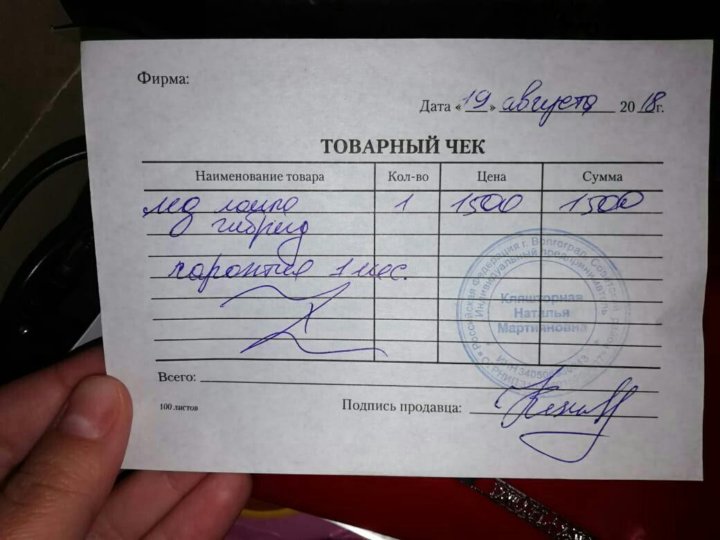 Фирма:
Дата «19» августа 2018г.
ТОВАРНЫЙ ЧЕК
Наименование товара Кол-во Цена Сумма
лед лампа 1 1500 1500
гибрид
гарантия 1 мес.
Российская Федерация г. Волгоград, Советский
Индивидуальный предприниматель
Кляшторная
Наталья
Мартияновна
Всего:
100 листов
Подпись продавца: